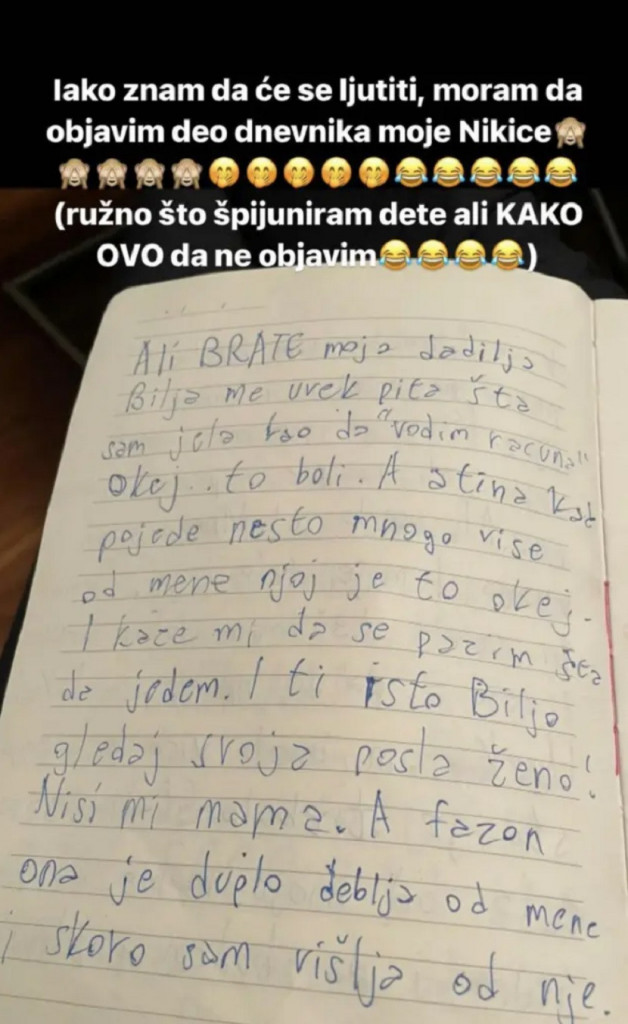 Iako znam da će se ljutiti, moram da
objavim deo dnevnika moje Nikice🙈
🙈🙈🙈🙈🤭🤭🤭🤭🤭😂😂😂😂😂
(ružno što špijuniram dete ali KAKO
OVO da ne objavim😂😂😂😂)
Ali BRATE moja dadilja
Bilja me uvek pita šta
sam jela kao da "vodim računa"
okej..to boli. A stina kad
pojede nesto mnogo vise
od mene njoj je to okej.
I kaže mi da se pazim šta
da jedem. I ti isto Biljo
gledaj svoja posla ženo!
Nisi mi mama. A fazon
ona je duplo deblja od mene
i skoro sam višlja od nje.